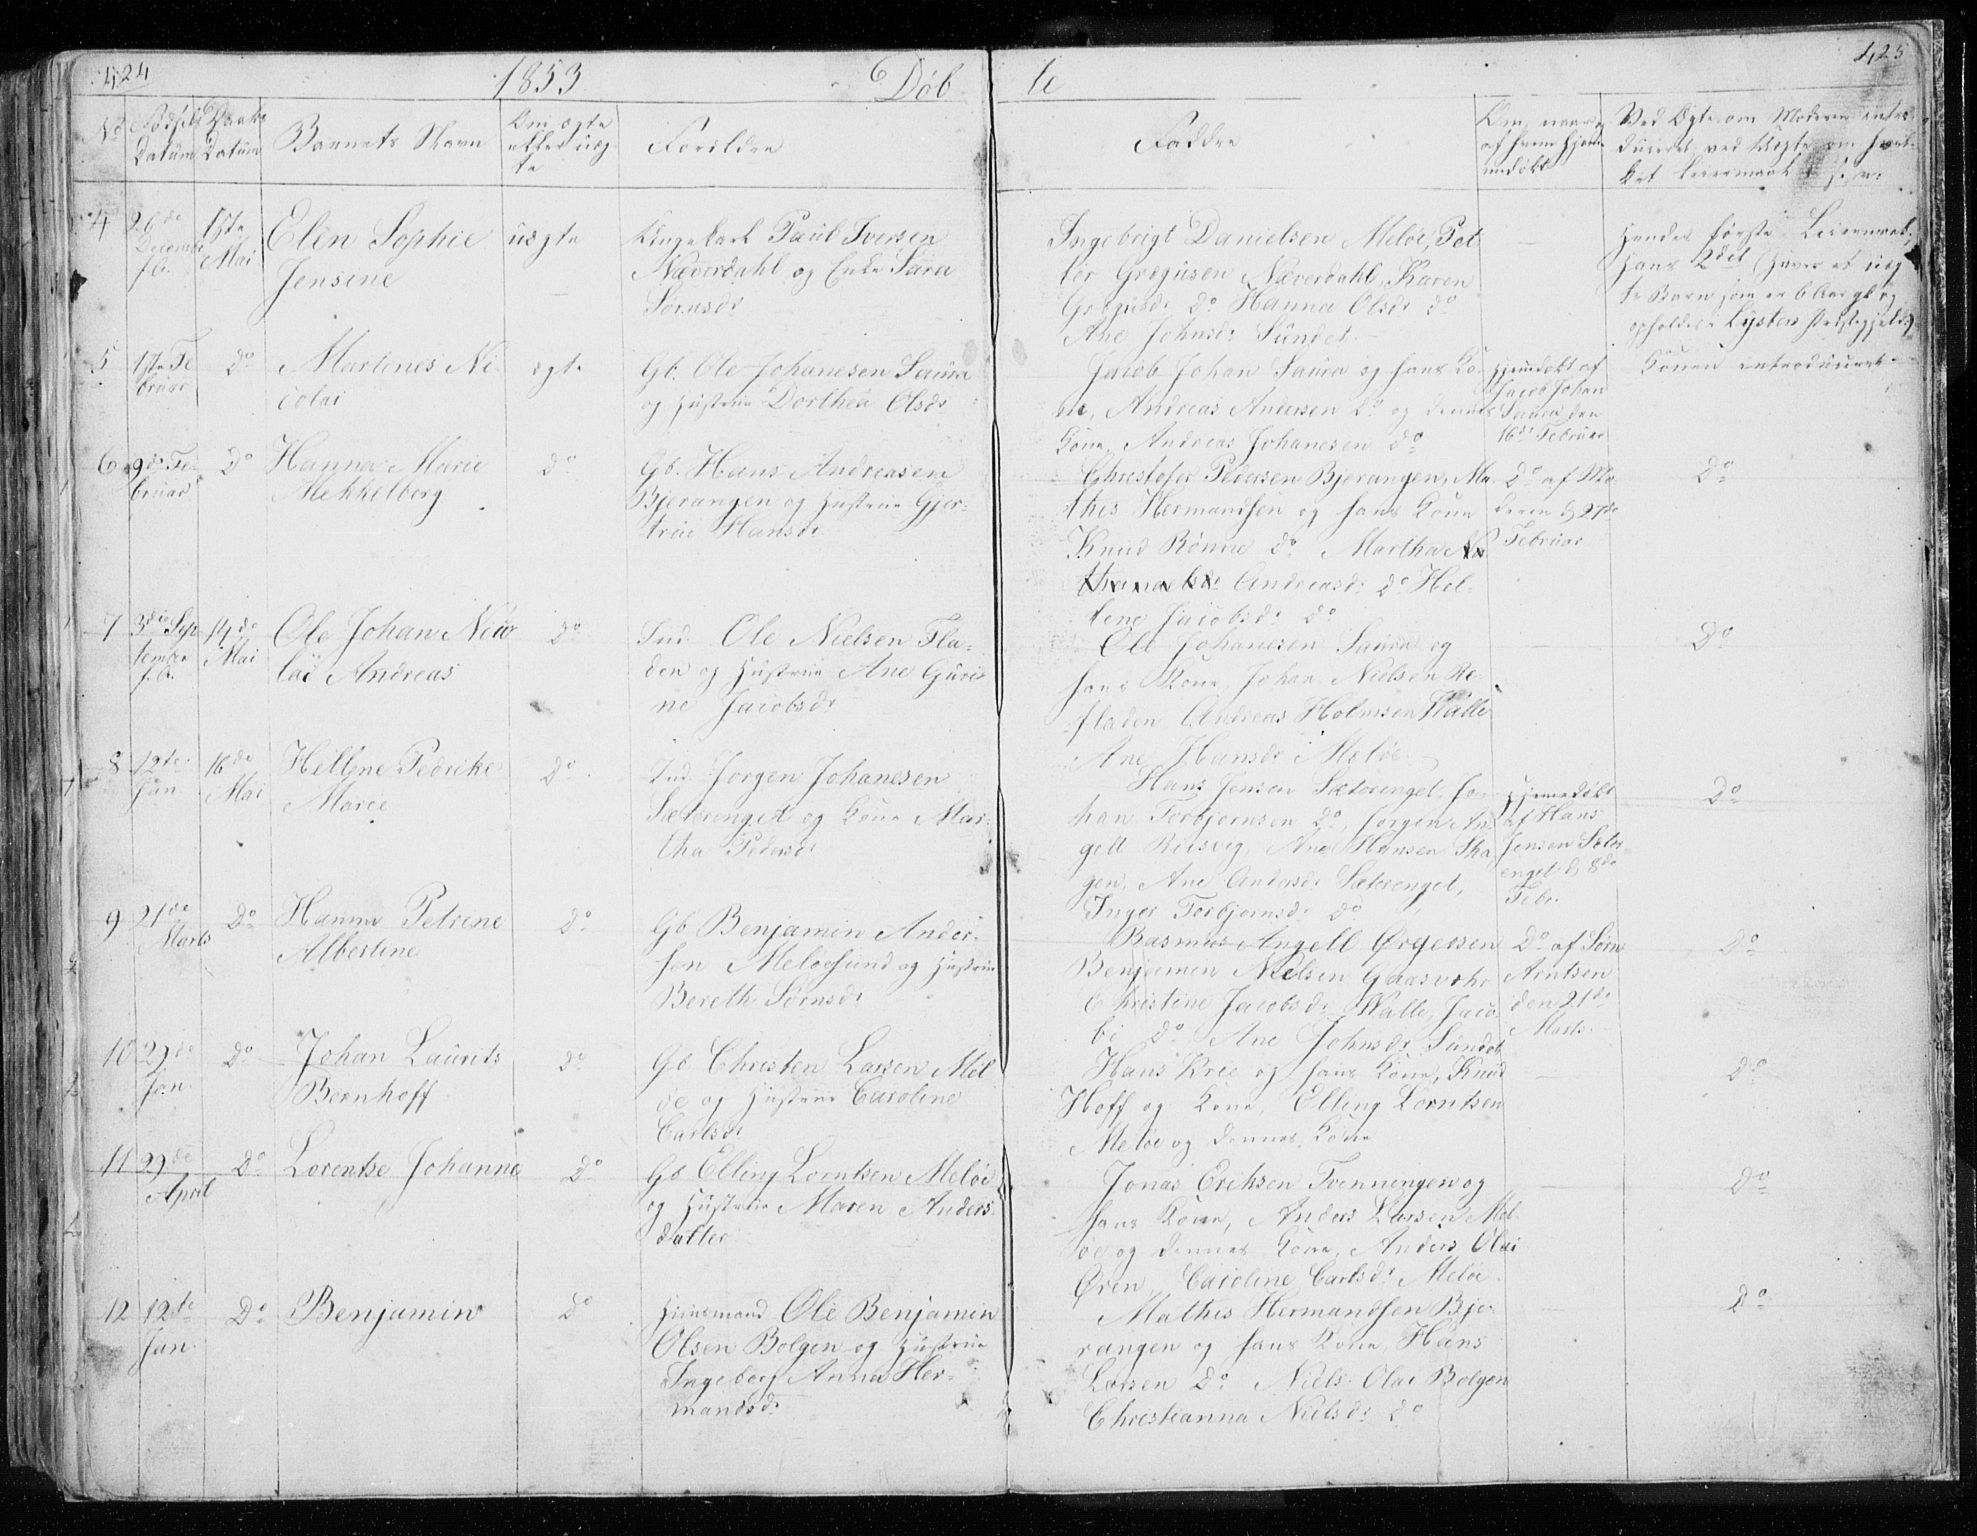 424
1853
Døb
te
425
No
Fødsels Datum
Daabs Datum
Barnets Navn
Om ægte eller uæg-
te
Forældre
Faddre
Om, naar og af hvem hjemmedøbt
Ved Ægte om Moderen intro-
duceret, ved Uægte om hvil-
ket Leiermaal
4
26de Decembr f.A.
1ste Mai
Elen Sophie
Jensine
uægte
Ungekarl Paul Iversen
Næverdahl og Enke Sara
Sørnsdr
Ingebrigt Danielsen Meløe, Pet
ter Gregusen Næverdahl, Karen
Gregusdr do Hanna Olsdr do
Ane Johnsdr Sundet
Hendes første Leiermaal,
Hans 2det (haver et uæg
te Barn som er 6 Aar gl og
opholdes i Lysters Præstegjeld)
5
17de Fe
bruar
Do
Martines Ni-
colai
ægte
Gb. Ole Johanesen Saura
og Hustrue Dorthea Olsdr
Jacob Johan Saura og hans Ko-
ne, Andreas Andersen do og dennes
Kone, Andreas Johanesen do
Hjemdøbt af
Jacob Johan
Saura den
16de Februar
Konen introduceret
6
9de Fe-
bruar
Do
Hanna Marie
Mekkelborg
Do
Gb. Hans Andreasen
Bjerangen og Hustrue Gjer-
true Hansdr
Christofer Pedersen Bjerangen, Ma
this Hermandsen og hans Kone
Knud Rønne do Martha
Andreasdr do Hel-
lene Jacobsdr do
Do af Mo
deren d 27de
Februar
Do
7
3die Sep
tember
f.A.
14de
Mai
Ole Johan Nico
lai Andreas
Do
Ind. Ole Nielsen Fla-
den og Hustrue Ane Guri-
ne Jacobsdr
Ole Johanesen Saura og
hans Kone, Johan Nielsen Re-
fladen Andreas Holmsen Walle
Ane Hansdr Meløe
Do
8
12te
Jan
16de
Mai
Hellene Pedrike
Marie
Do
Ind. Jørgen Johanesen
Sætorenget og Kone Mar-
tha Pedersdr
Hans Jensen Sætorenget, Jo-
han Torbjørnsen Do, Jørgen An-
gell Reisvig, Ane Hansen Ska
gen, Ane Andersdr Sætorenget,
Inger Torbjørnsdr do
Hjemmedøbt
af Hans
Jensen Sætor
enget d 8de
Febr.
Do
9
21de
Marts
Do
Hanna Petrine
Albertine
Do
Gb Benjamin Ander-
sen Meløesund og Hustrue
Bereth Sørnsdr
Rasmus Angell Ørgessen
Benjamin Nielsen Gaasvohr
Christine Jacobsdr Walle, Jaco-
be do Ane Johnsdr Sundet
Do af Sørn
Arntsen
den 21de
Marts
Do
10
29de
Jan
Do
Johan Laurits
Bernhoff
Do
Gb Christen Larsen Mel
øe og Hustrue Caroline
Carlsdr
Hans Kree og hans Kone, Knud
Hoff og Kone, Elling Lorntsen
Meløe og dennes Kone
Do
11
29de
April
Do
Lorentse Johanne
Do
Gb Elling Lorntsen Meløe
og Hustrue Maren Anders
datter
Jonas Eriksen Tvenningen og
hans Kone, Anders Larsen Mel-
øe og dennes Kone, Anders Olai
Øren, Caroline Carlsdr Meløe
Do
12
12te
Jan
Do
Benjamin
Do
Huusmand Ole Benjamin
Olsen Bolgen og Hustrue
Ingeborg Anna Her-
mandsdr
Mathis Hermandsen Bje-
rangen og hans Kone, Hans
Larsen Do Niels Olai Bolgen
Christianna Nielsdr do
Do